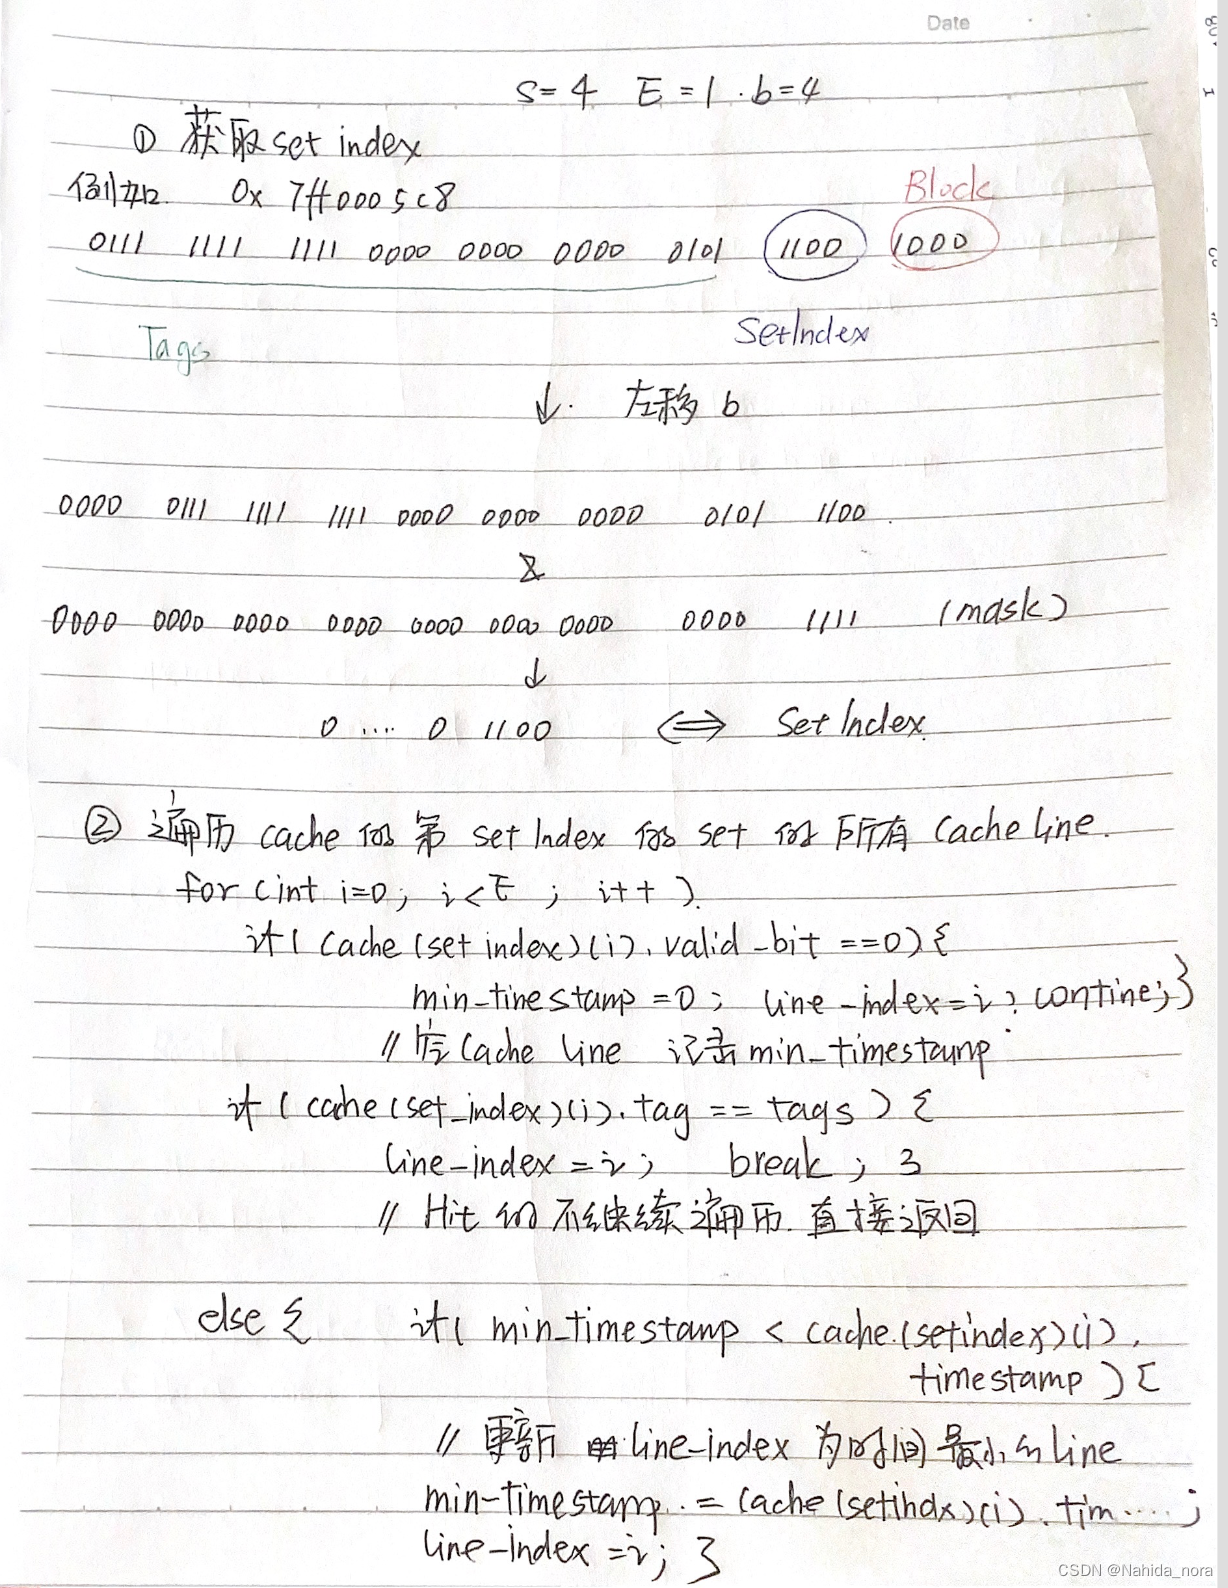 Date
S=4 E=1 . b=4
① 获取set index
例如 0x 7ff0005c8
Block
0111 1111 1111 0000 0000 0000 0101 1100 1000
SetIndex
Tags
↓. 左移 b
0000 0111 1111 1111 0000 0000 0000 0101 1100 .
&
0000 0000 0000 0000 0000 0000 0000 0000 1111 (mask)
↓
0 .... 0 1100 <=> Set Index.
② 遍历 cache 的 第 set Index 的 set 的 所有 Cache line.
for (int i=0; i<E ; i++ ).
if( cache(set index)(i).valid_bit ==0){
min_tinestamp =0; line-index=i; contine;}
// 空 Cache line 记录 min_timestamp
if ( cache(set_index)(i).tag == tags ) {
line-index =i; break; }
// Hit 的 不继续遍历. 直接返回
else { if( min_timestamp < cache.(setindex)(i).
timestamp ) {
// 更新 line-index 为时间最小的line
min-timestamp. = Cache(setindx)(i).tim.....;
line-index =i; }
CSDN @Nahida_nora